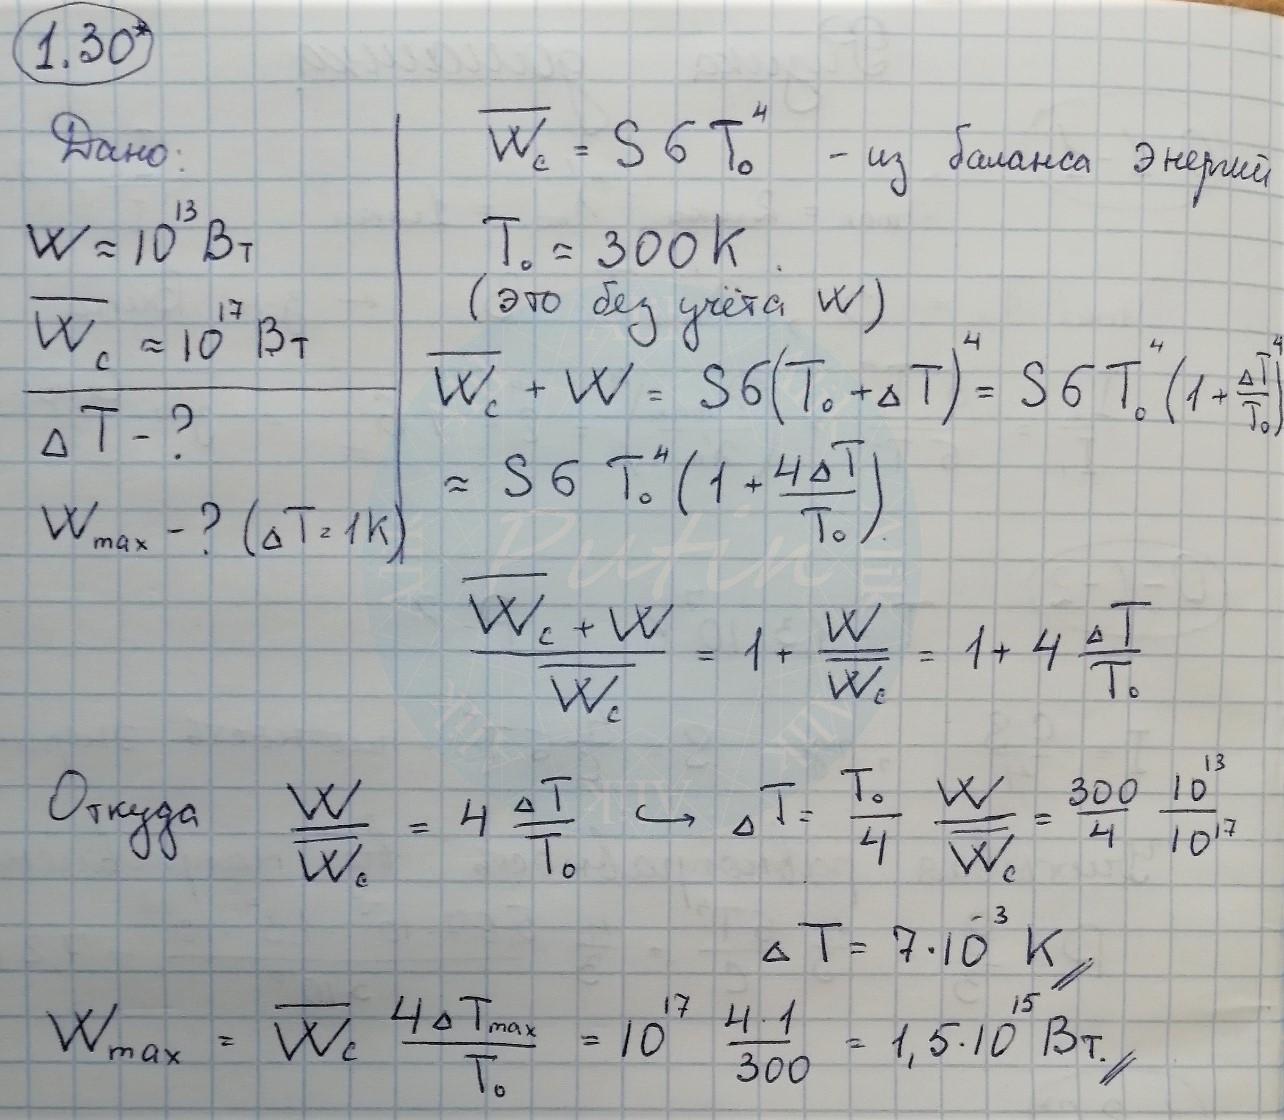 1.30*
Дано:
W ≈ 10¹³ Вт
W̅c ≈ 10¹⁷ Вт
ΔT - ?
Wmax - ? (ΔT = 1K)
W̅c = S б T₀⁴ - из баланса энергий
T₀ ≈ 300K.
(это без учёта W)
W̅c + W = S б (T₀ + ΔT)⁴ = S б T₀⁴ (1 + ΔT/T₀)⁴
≈ S б T₀⁴ (1 + 4ΔT/T₀).
Putin
(W̅c + W)/W̅c = 1 + W/W̅c = 1 + 4 ΔT/T₀
Откуда W/W̅c = 4 ΔT/T₀ ↪ ΔT = T₀/4 W/W̅c = 300/4 10¹³/10¹⁷
ΔT = 7·10⁻³ K //
Wmax = W̅c 4ΔTmax/T₀ = 10¹⁷ 4·1/300 = 1,5·10¹⁵ Вт. //